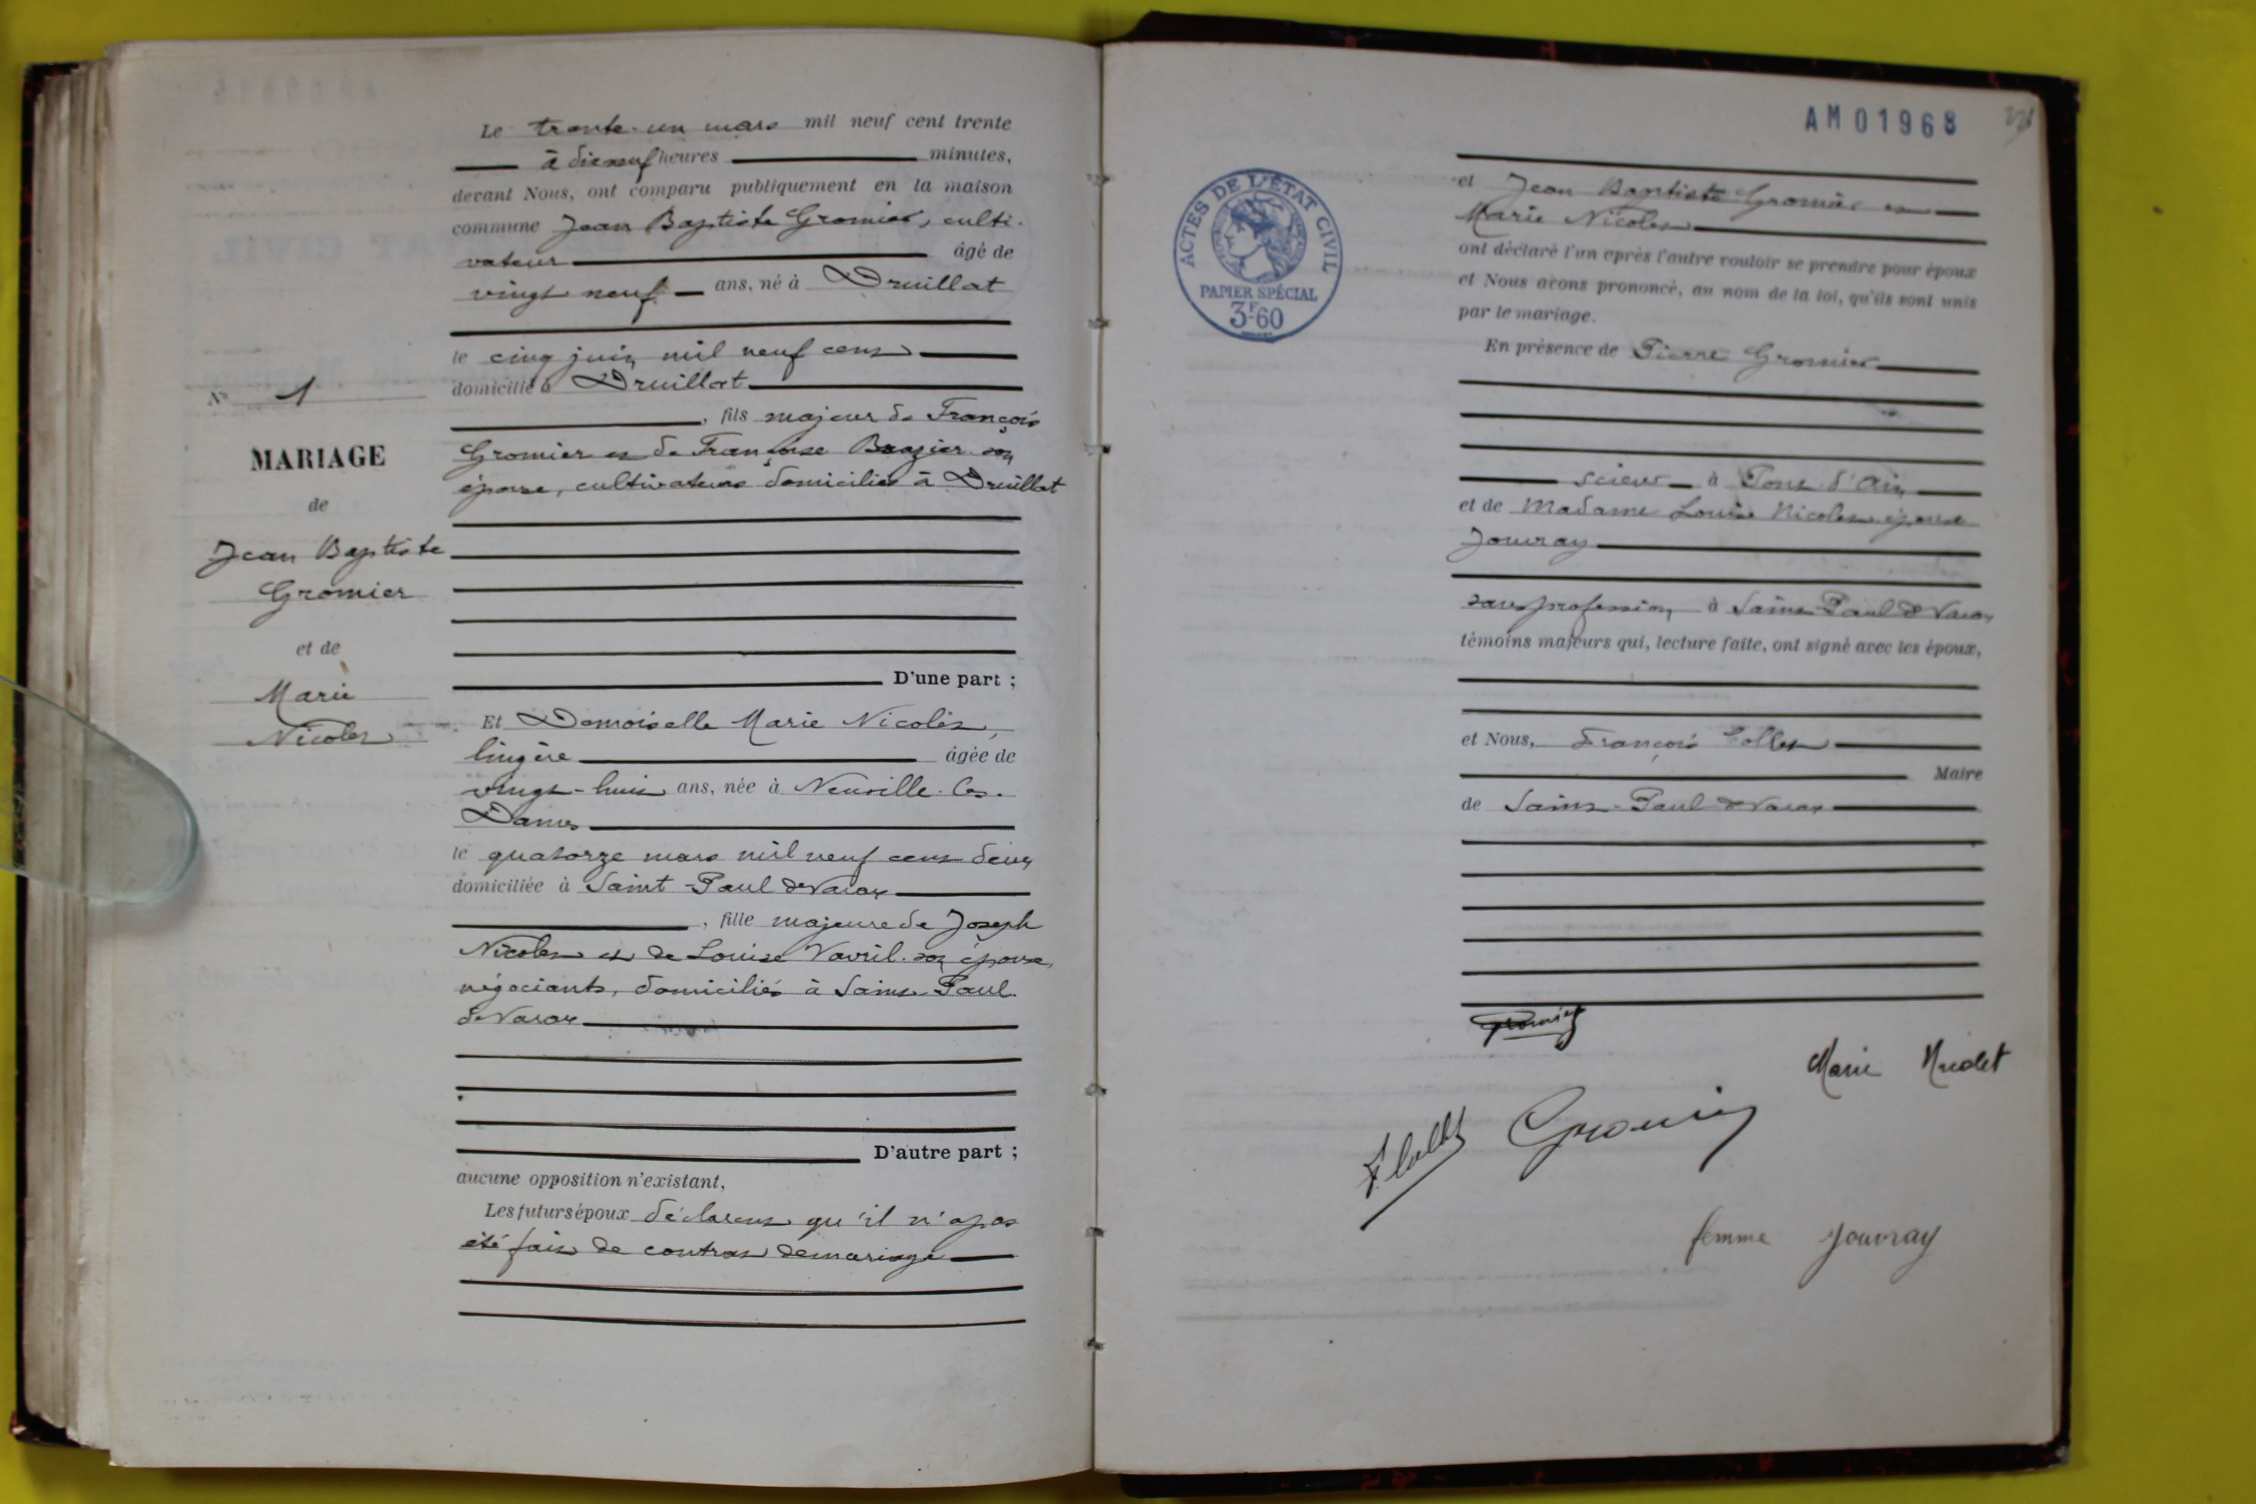 Le trente-un mars mil neuf cent trente
à dix neuf heures minutes,
devant Nous, ont comparu publiquement en la maison
commune Jean Baptiste Gromier, culti-
vateur âgé de
vingt neuf ans, né à Druillat
le cinq juin mil neuf cent
domicilié à Druillat
N° 1
, fils majeur de François
Gromier et de Françoise Brazier son
épouse, cultivateurs domiciliés à Druillat
MARIAGE
de
Jean Baptiste
Gromier
et de
Marie
Nicolet
D'une part ;
Et Demoiselle Marie Nicolet,
lingère âgée de
vingt-huit ans, née à Neuville-les-
Dames
le quatorze mars mil neuf cent deux
domiciliée à Saint-Paul de Varax
, fille majeure de Joseph
Nicolet et de Louise Vavril son épouse,
négociants, domiciliés à Saint-Paul
de Varax
D'autre part ;
aucune opposition n'existant,
Les futurs époux déclarent qu'il n'a pas
été fait de contrat de mariage
AM01968
ACTES DE L'ÉTAT CIVIL
PAPIER SPÉCIAL
3F60
et Jean Baptiste Gromier et
Marie Nicolet
ont déclaré l'un après l'autre vouloir se prendre pour époux
et Nous avons prononcé, au nom de la loi, qu'ils sont unis
par le mariage.
En présence de Pierre Gromier
scieur à Pont d'Ain
et de Madame Louise Nicolet épouse
Jouvray
sans profession à Saint-Paul de Varax
témoins majeurs qui, lecture faite, ont signé avec les époux,
et Nous, François Collet
Maire
de Saint-Paul de Varax
Gromier
Marie Nicolet
F Collet Gromier
femme Jouvray